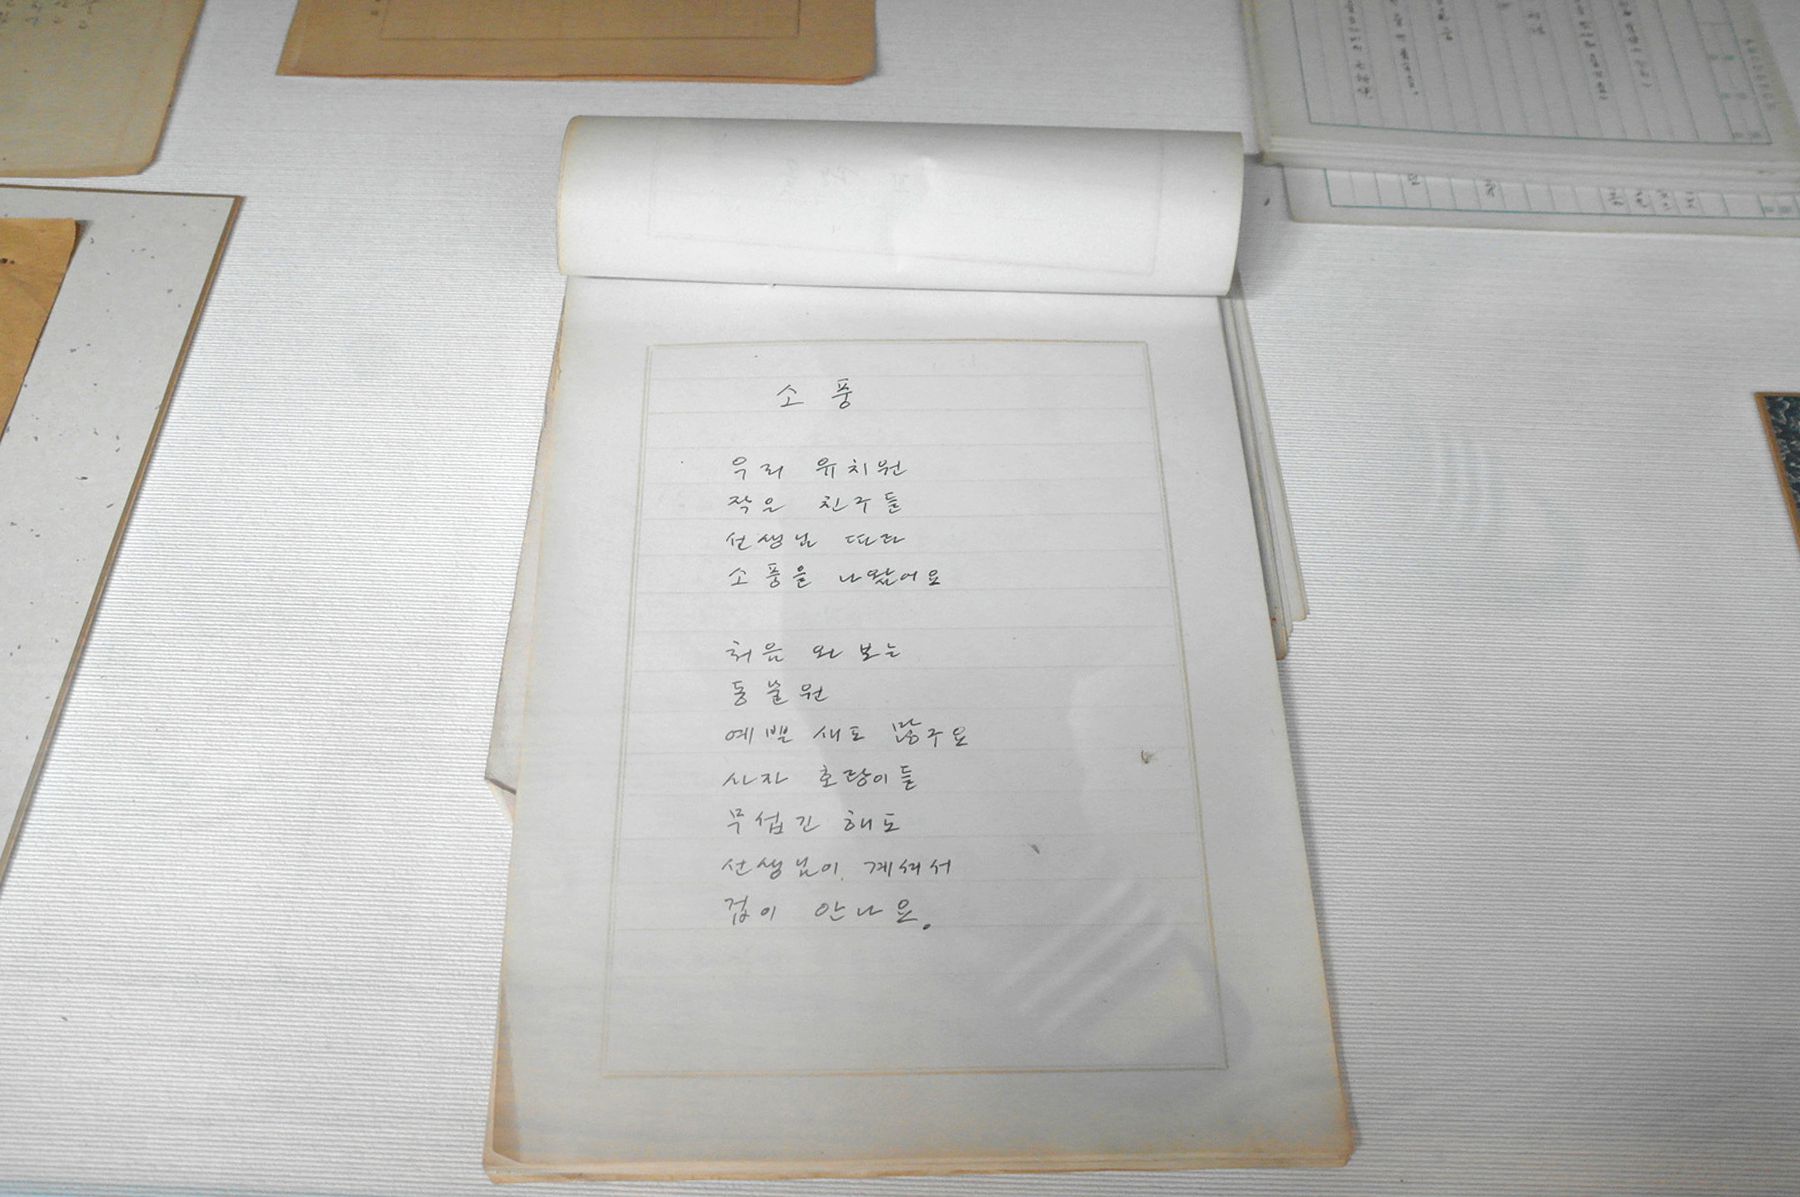 소풍
우리 유치원
작은 친구들
선생님 따라
소풍을 나왔어요
처음 와 보는
동물원
예쁜 새도 많구요
사자 호랑이들
무섭긴 해도
선생님이 계셔서
겁이 안나요.